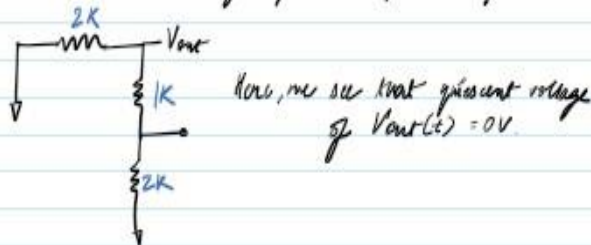 2K
Vout
1K
Here, we see that quiescent voltage
of Vout(t) = 0V.
2K